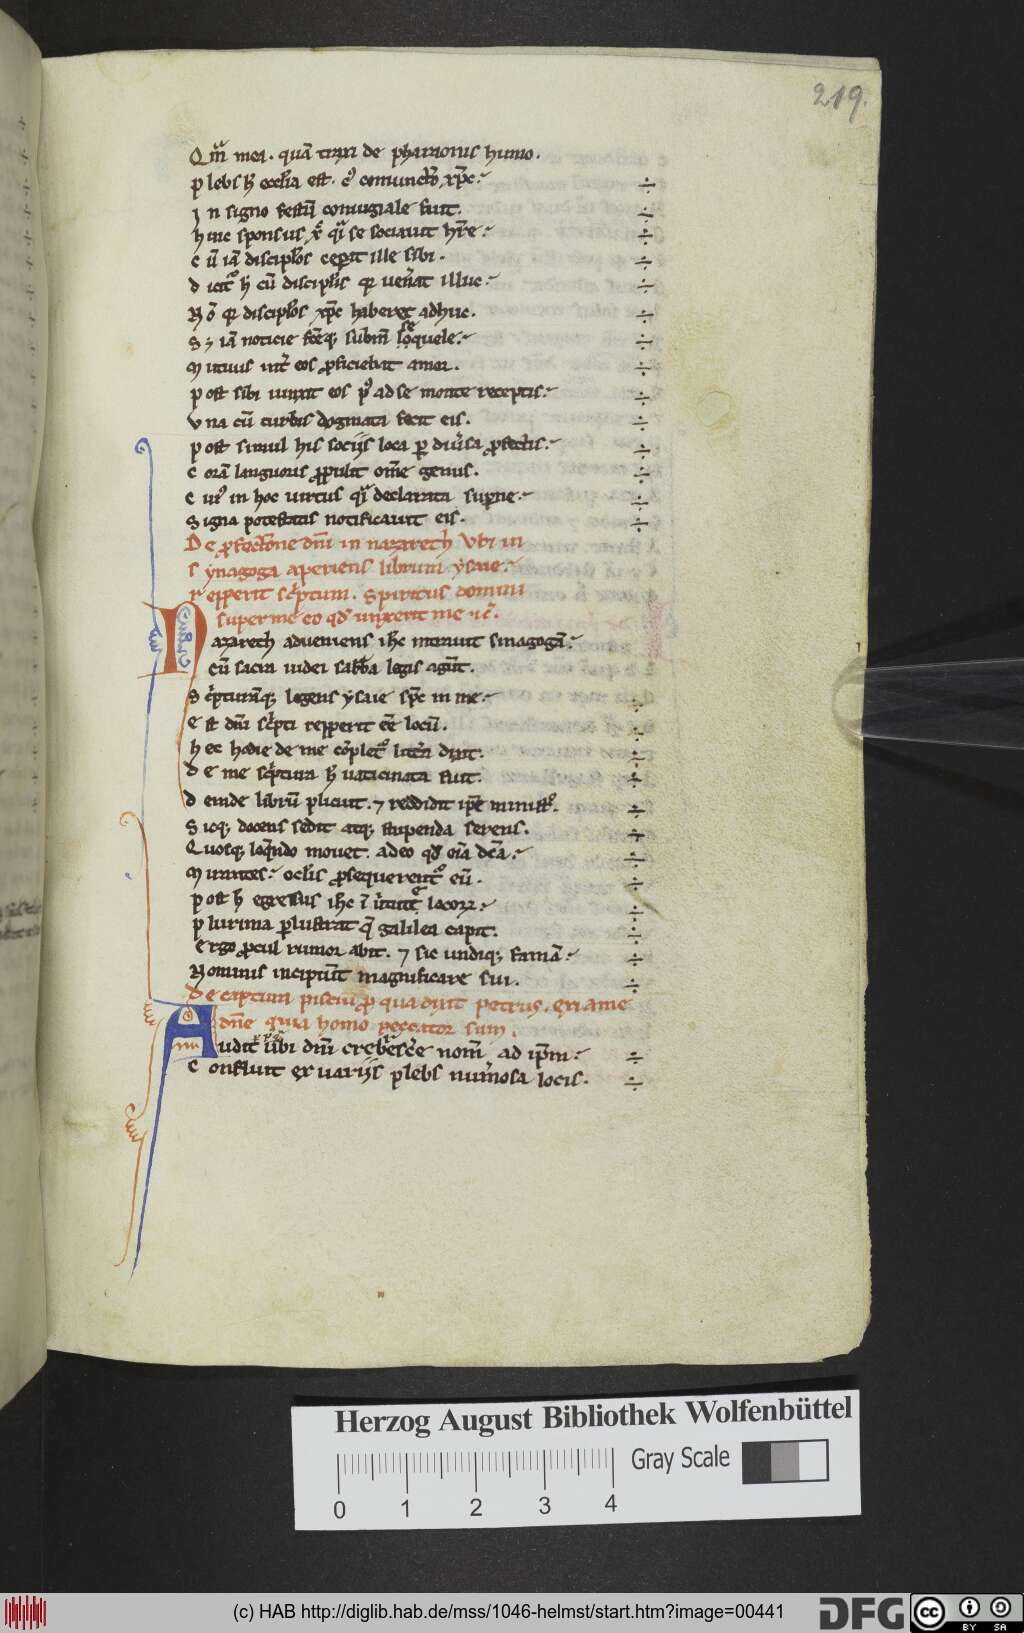 219.
Q m̄ mea. quā traxi de pharaonis humo.
p lebs h̄ eccl̄ia est. c̄ coniuncta xp̄c
I n signo festū coniugiale fuit.
h inc sponsus se sociauit
c ū iā discip̄los cepit ille sibi.
d icit̄ h̄ cū discip̄lis qr uen̄at illuc
N ō qr discip̄los xp̄c haberet adhuc.
S iā noticie sub loquele
M utuus int̄ eos p̄ficiebat amor.
p ost sibi iunxit eos ad se monte receptis
v na cū turbis dogmata fecit eis.
p ost simul his sociis loca p diu̓sa p̄fectus
c oram languoris p̄pulit om̄e genus.
c ui in hoc uirtus declarata sup̄ne
S igna potestatis notificauit eis.
De p̄fectione dn̄i in nazareth Vbi in
synagoga aperiens librum ysaie
repperit sc̄ptum. Spiritus domini
super me eo qd̄ unxerit me
N azareth adueniens ih̄c intrauit sinagogā
cū sacra iudei sabb̄a legis agūt.
S c̄pturāq; legens ysaie sp̄c in me
e st dn̄i sc̄pti repperit eē locū.
h ec hodie de me cōplet̄ litt̄a dixit.
d e me sc̄ptura h̄ uaticinata fuit.
d einde librū plicuit. ⁊ reddidit ip̄e minist̄.
S icq; docens sedit atq; stupenda serens.
Q uosq; loq̄ndo mouet. adeo qd̄ oīa
M irantes ocl̄is p̄sequerent̄ eū.
p ost h̄ egressus ih̄c ī locorꝝ
p lurima p̄lustrat galilea capit.
ergo p̄cul rumor abit. ⁊ sic undiq; famā
N ominis incipiūt magnificare sui.
De captura pisciū p̄ qua dixit petrus. exi a me
dn̄e quia homo peccator sum.
A udit̄ ubi dn̄i crebescē nom̄ ad ip̄m
c onfluit ex uariis plebs num̄osa locis.
Herzog August Bibliothek Wolfenbüttel
Gray Scale
0 1 2 3 4
(c) HAB http://diglib.hab.de/mss/1046-helmst/start.htm?image=00441
DFG
cc BY SA